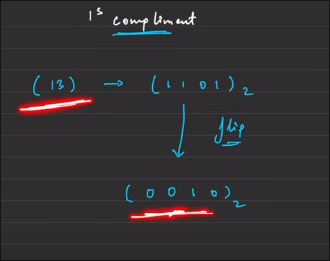 1s compliment
(13) → (1101)2
flip
(0010)2